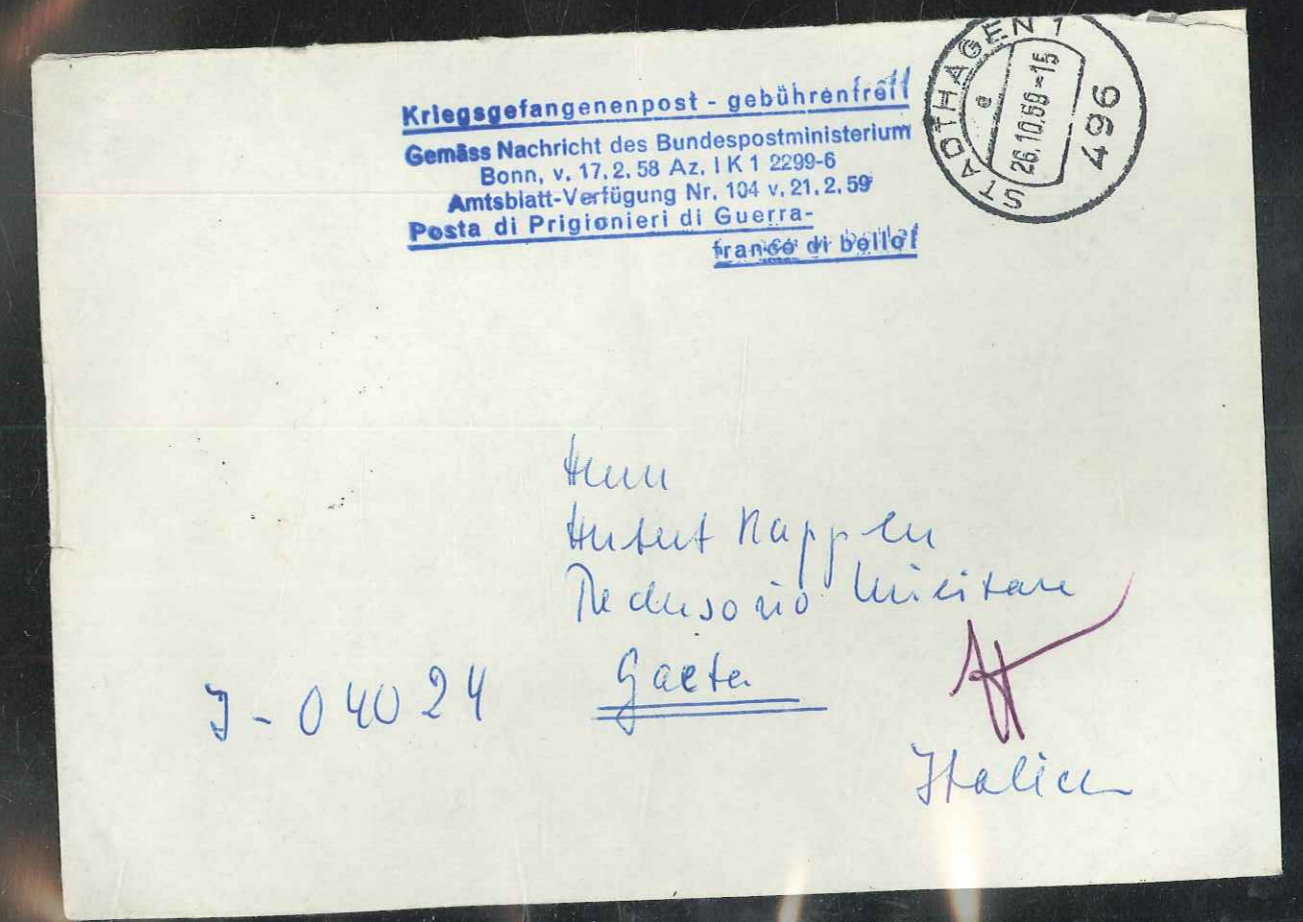 Kriegsgefangenenpost - gebührenfrei!
Gemäss Nachricht des Bundespostministerium
Bonn, v. 17.2.58 Az. I K 1 2299-6
Amtsblatt-Verfügung Nr. 104 v. 21.2.59
Posta di Prigionieri di Guerra-
franco di bollo!
STADTHAGEN 1
e
26.10.69-15
496
Herrn
Herbert Kappler
Reclusorio Militare
J - 04024 Gaeta
Italien